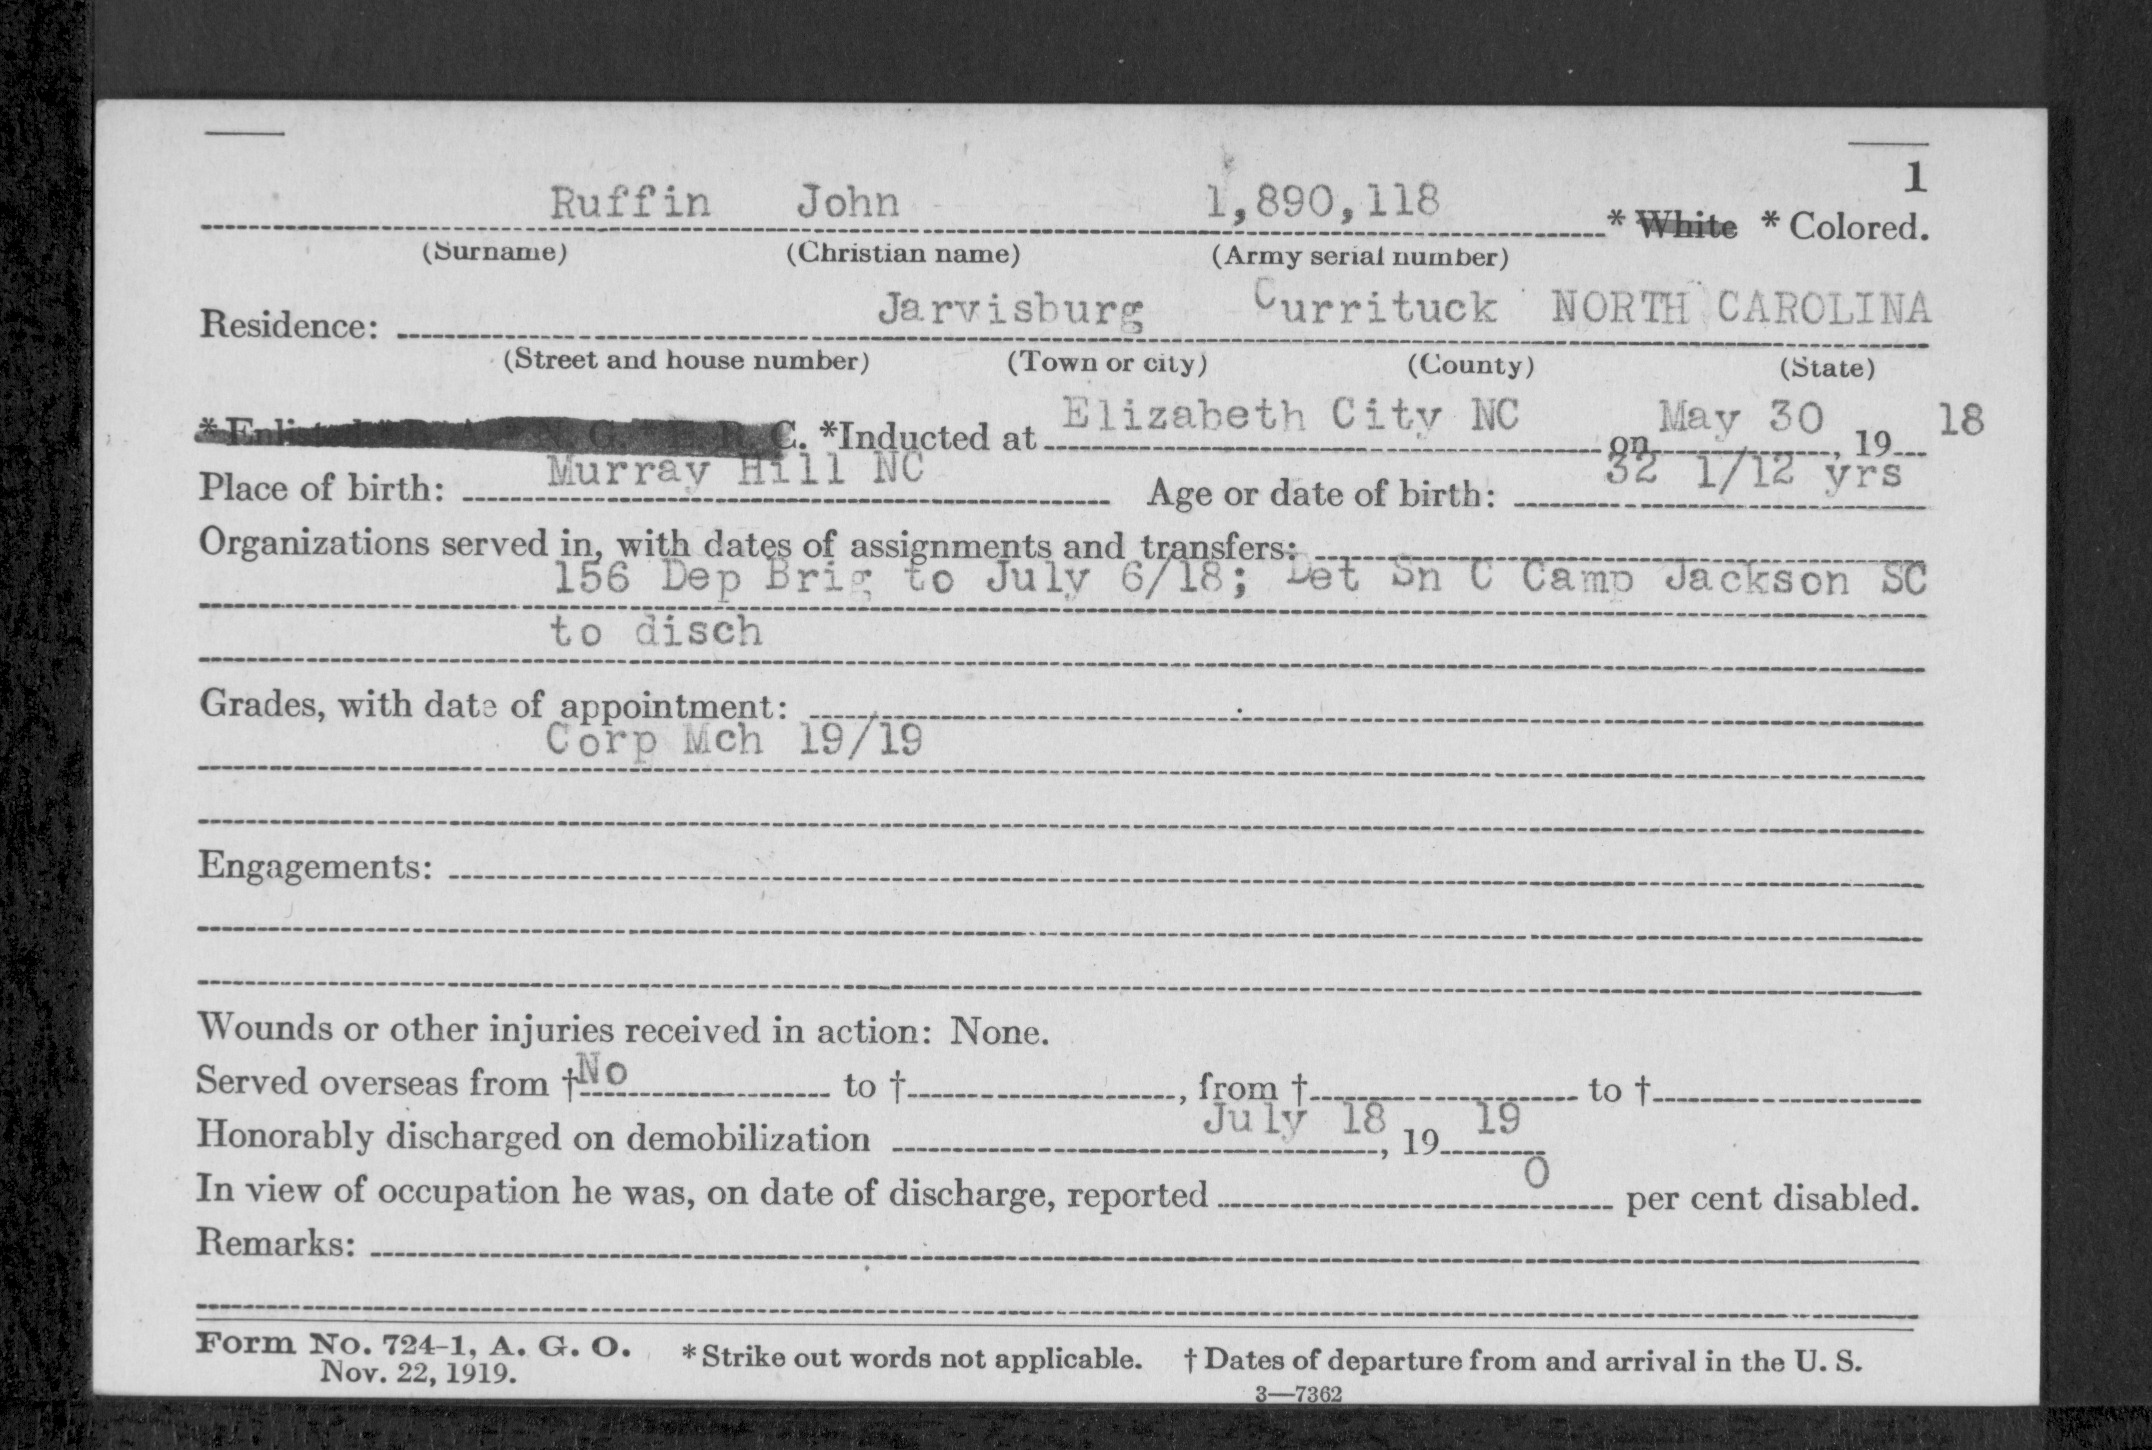 1
Ruffin John 1,890,118 * White * Colored.
(Surname) (Christian name) (Army serial number)
Residence: Jarvisburg Currituck NORTH CAROLINA
(Street and house number) (Town or city) (County) (State)
C. *Inducted at Elizabeth City NC on May 30, 19 18
Place of birth: Murray Hill NC Age or date of birth: 32 1/12 yrs
Organizations served in, with dates of assignments and transfers:
156 Dep Brig to July 6/18; Det Sn C Camp Jackson SC
to disch
Grades, with date of appointment:
Corp Mch 19/19
Engagements:
Wounds or other injuries received in action: None.
Served overseas from † No to †, from † to †
Honorably discharged on demobilization July 18, 19 19
In view of occupation he was, on date of discharge, reported 0 per cent disabled.
Remarks:
Form No. 724-1, A. G. O. * Strike out words not applicable. † Dates of departure from and arrival in the U. S.
Nov. 22, 1919.
3—7362